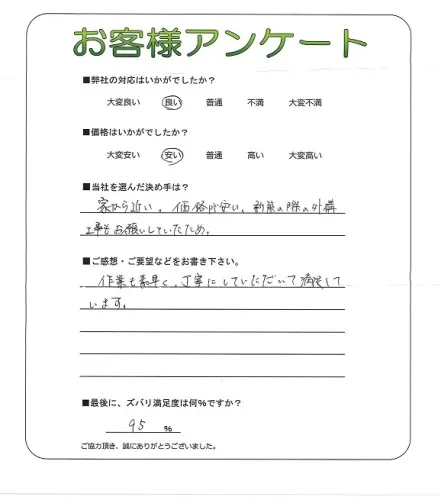 お客様アンケート
■弊社の対応はいかがでしたか?
大変良い 良い 普通 不満 大変不満
■価格はいかがでしたか?
大変安い 安い 普通 高い 大変高い
■当社を選んだ決め手は?
家から近い。価格が安い。新築の際の外構
工事もお願いしていたため。
■ご感想・ご要望などをお書き下さい。
作業も素早く、丁寧にしていただいて満足して
います。
■最後に、ズバリ満足度は何%ですか?
95 %
ご協力頂き、誠にありがとうございました。